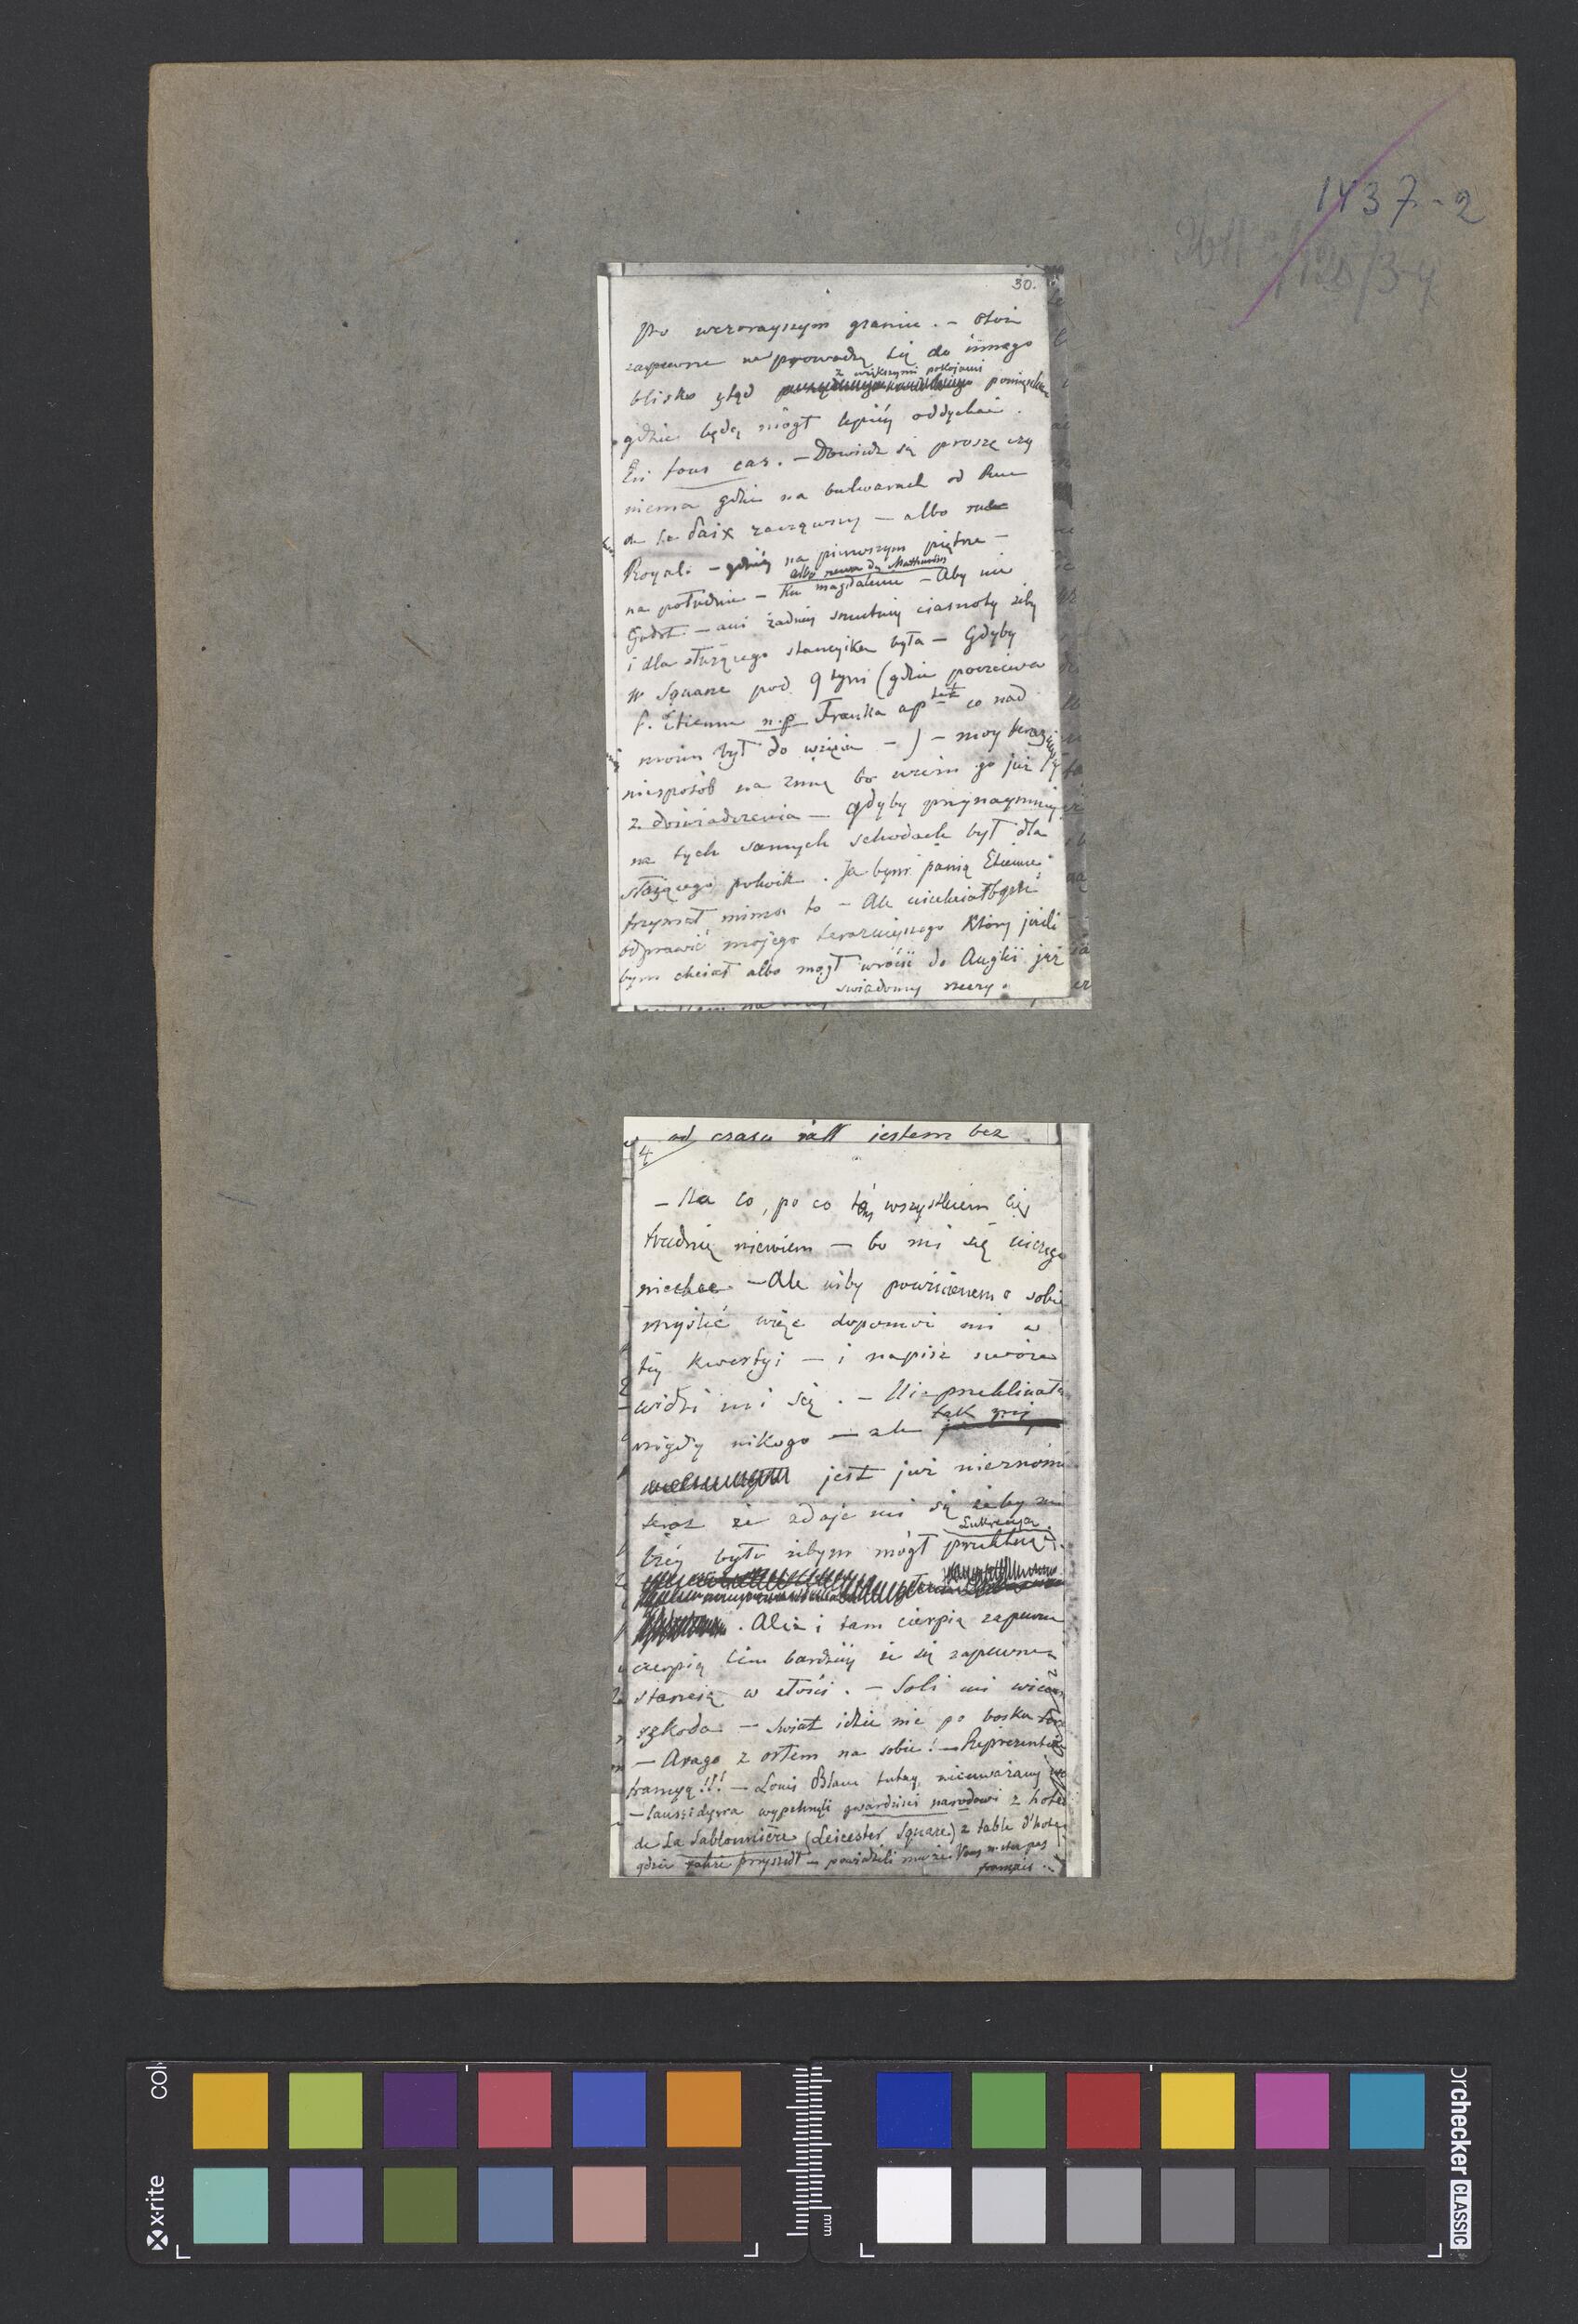 1437-2
30.
Po wczorayszym graniu. – Otóż
zapewne wyprowadzę się do innego
z większymi pokojami
blisko ztąd pomieszka
gdzie będę mógł lepiéj oddychać.
En tous cas. – Dowiedz się proszę czy
niema gdzie na bulwarach od Rue
de la Paix zacząwszy – albo rue
Royale – gdziéś na pierwszym piętrze –
albo rue de Mathurins
na południe – Ku magdalenie – Aby nie
Godot – ani żadnéj smutnéj ciasnoty żeby
i dla służącego stancyjka była – Gdyby
w Square pod 9tym (gdzie poczciwa
P. Etienne n.p Franka ap co nad
moim był do wzięcia –) – moy teraz
niesposób na zimę bo wiem go już
z doświadczenia – gdyby przynaymniéj
na tych samych schodach był dla
służącego pokoik. Ja bym panią Etienne
trzymał mimo to – Ale niechciałbym
odprawić mojego terazniejszego Który jeżeli
bym chciał albo mógł wrócić do Anglii już
swiadomy rzeczy.
od czasu jestem bez
4
– Na co, po co tém wszystkiem Cię
trudnię niewiem – bo mi się niczego
niechce. – Ale niby powinienem o sobie
myśleć więc dopomóż mi w
téj kwestyi – i napisz
widzi mi się. – Nieprzeklinałem
tak mi
nigdy nikogo – ale
jest już nieznośnie
teraz że zdaje mi się żeby mi
Lukrecyą
lżéj było żebym mógł przekląć
. Aleć i tam cierpią zapewne
cierpią tém bardziéj że się zapewne
starzeją w złości. – Soli mi wiecznie
szkoda – świat idzie nie po bosku
– Arago z orłem na sobie! – Reprezentuje
francyą!!! – Louis Blanc tutaj nieuważany
– Caussidyera wypchnęli gwardziści narodowi z hotel
de La Sablonnière (Leicester Square) z table d'hote
gdzie także przyszedł – powiedzieli mu że Vous n'etes pas
français.